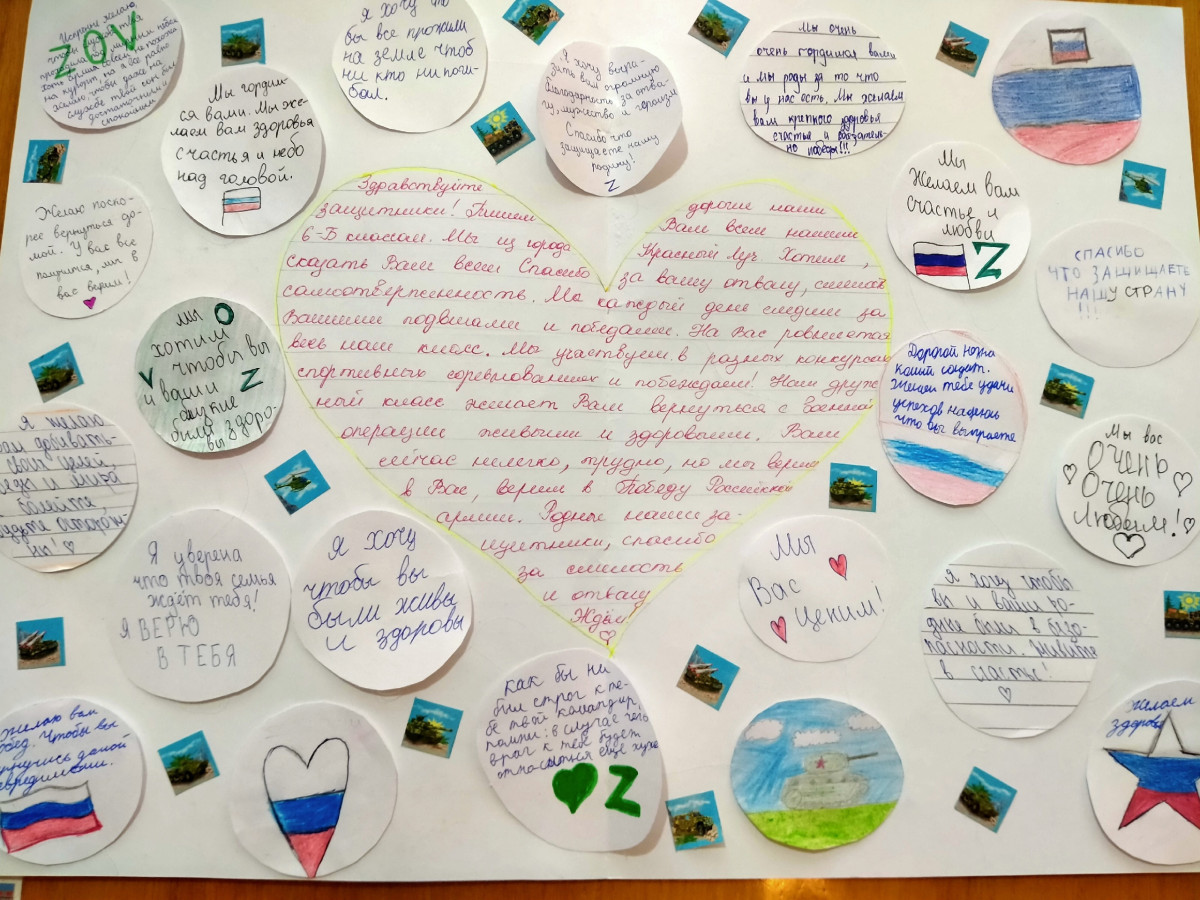 ZOV
Искренне желаю,
Мы гордим-
ся вами. Мы же-
лаем вам здоровья
счастья и небо
над головой.
Я хочу что
вы все прожили
на земле чтоб
ни кто ни поги-
бал.
Я хочу выра-
зить вам огромную
благодарность за отва-
гу, мужество и героизм
Спасибо что
защищаете нашу
родину!
Z
Мы очень
очень гордимся вами
и мы рады за то что
вы у нас есть. Мы желаем
вам крепкого здоровья
счастье и
но победы!!!
Мы
Желаем вам
счастье и
любви
Z
Желаю поско-
рее вернуться до-
мой. У вас все
получится, мы в
вас верим!
СПАСИБО
ЧТО ЗАЩИЩАЕТЕ
НАШУ СТРАНУ
!!!
Мы O
хотим
V чтобы вы
и ваши Z
близкие
были здоро-
вы
Здравствуйте дорогие наши
защитники! Пишем Вам всем нашим
6-Б классом. Мы из города Красный Луч Хотим,
сказать Вам всем Спасибо за вашу отвагу, смелость
самоотверженность. Мы каждый день следим за
Вашими подвигами и победами. На Вас ровняется
весь наш класс. Мы участвуем в разных конкурсах
спортивных соревнованиях и побеждаем! Наш друж
ный класс желает Вам вернуться с военной
операции живыми и здоровыми. Вам
сейчас нелегко, трудно, но мы верим
в Вас, верим в Победу Российской
армии. Родные наши за-
щитники, спасибо
за смелость
и отвагу
Ждём
Дорогой
солдат.
Желаем тебе удачи
успехов надеюсь
что вы выиграете
Мы вас
ОЧЕНЬ
ОЧЕНЬ
Любим!
Я желаю
вам добивать-
своих целей,
и мира
болейте,
будьте осторож-
ны!
Я уверена
что твоя семья
ждёт тебя!
Я ВЕРЮ
В ТЕБЯ
Я хочу
чтобы вы
были живы
и здоровы
Мы
Вас
ценим!
Я хочу чтобы
вы и ваши ро-
дные были в безо-
пасности. Живите
в счастье!
как бы ни
был строг к те-
бе твой командир,
помни: в случае чего
враг к тебе будет
относиться еще хуже
Z
желаю вам
побед. Чтобы вы
вернулись домой
невредимыми.
желаем
здоровья